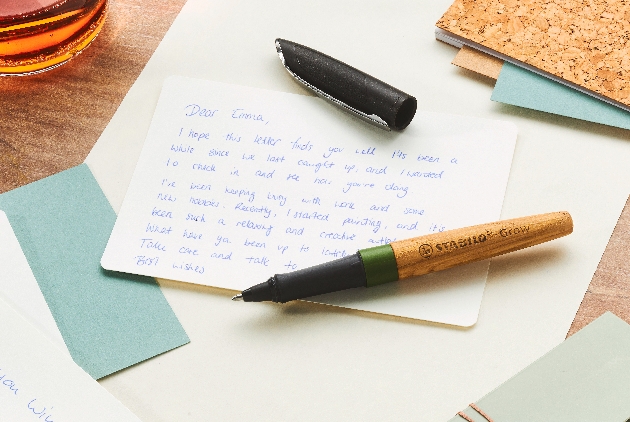 Dear Emma,
I hope this letter finds you well. It's been a
while since we last caught up, and I wanted
to check in and see how you're doing
I've been keeping busy with work and some
new hobbies. Recently, I started painting, and it's
been such a relaxing and creative
What have ya been up to
Take care and talk to
Best wishes
STABILO Grow
you